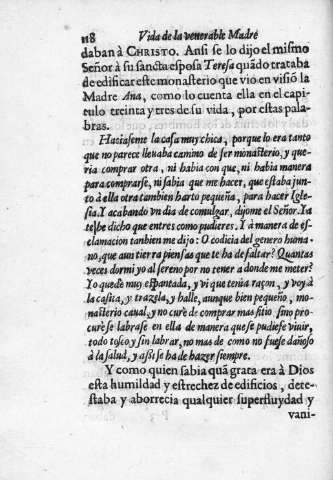 118 Vida de la venerable Madre
daban à CHRISTO. Ansi se lo dijo el mismo
Señor à su sancta esposa Teresa quãdo trataba
de edificar este monasterio que vió en visiõ la
Madre Ana, como lo cuenta ella en el capi
tulo treinta y tres de su vida, por estas pala
bras.
Haciaseme la casa muy chica, porque lo era tanto
que no parece llevaba camino de ser monasterio, y que-
ria comprar otra, ni habia con que, ni habia manera
para comprarse, ni sabia que me hacer, que estaba jun-
to à ella otra tambien harto pequeña, para hacer Igle-
sia. Y acabando vn dia de comulgar, dijome el Señor. Ya
te he dicho que entres como pudieres. Y à manera de es-
clamacion tanbien me dijo: O codicia del genero huma-
no, que aun tierra piensas que te ha de faltar? Quantas
veces dormi yo al sereno por no tener a donde me meter?
Yo quedè muy espantada, y vi que tenia raçon, y voy à
la casita, y trazela, y halle, aunque bien pequeño, mo-
nasterio caual, y no curè de comprar mas sitio sino pro-
curè se labrase en ella de manera que se pudiese viuir,
todo tosco y sin labrar, no mas de como no fuese dañoso
à la salud, y assi se ha de hazer siempre.
Y como quien sabia quã grata era à Dios
esta humildad y estrechez de edificios, dete-
staba y aborrecia qualquier superfluydad y
vani-